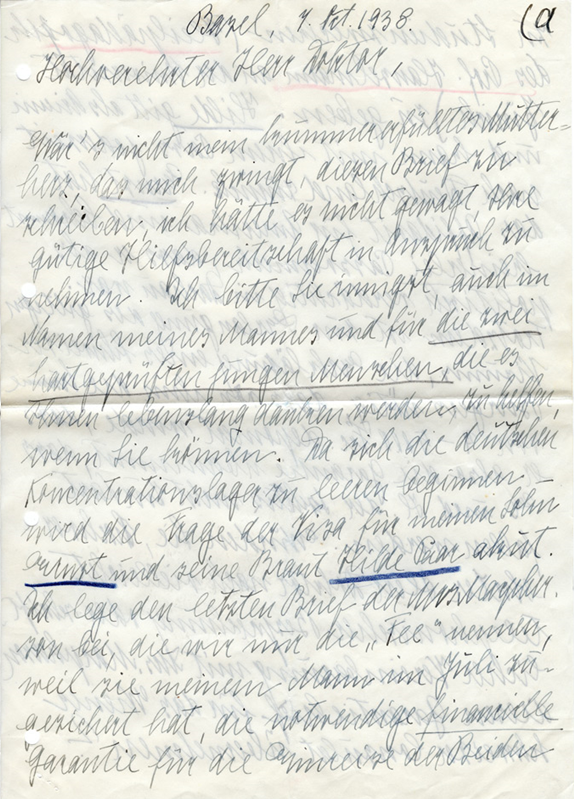 (a
Basel, 7. Okt. 1938.
Hochverehrter Herr Doktor,
Wär's nicht mein kummererfülltes Mutter-
herz, das mich zwingt, diesen Brief zu
schreiben, ich hätte es nicht gewagt, Ihre
gütige Hilfsbereitschaft in Anspruch zu
nehmen. Ich bitte Sie innigst, auch im
Namen meines Mannes und für die zwei
hartgeprüften jungen Menschen, die es
Ihnen lebenslang danken werden, zu helfen,
wenn Sie können. Da sich die deutschen
Koncentrationslager zu leeren beginnen –
wird die Frage der Visa für meinen Sohn
und seine Braut Hilde akut.
Ich lege den letzten Brief der Mrs.
bei, die wir nur die „Fee" nennen,
weil sie meinem Mann im Juli zu-
gesichert hat, die notwendige finanzielle
Garantie für die Einreise der Beiden